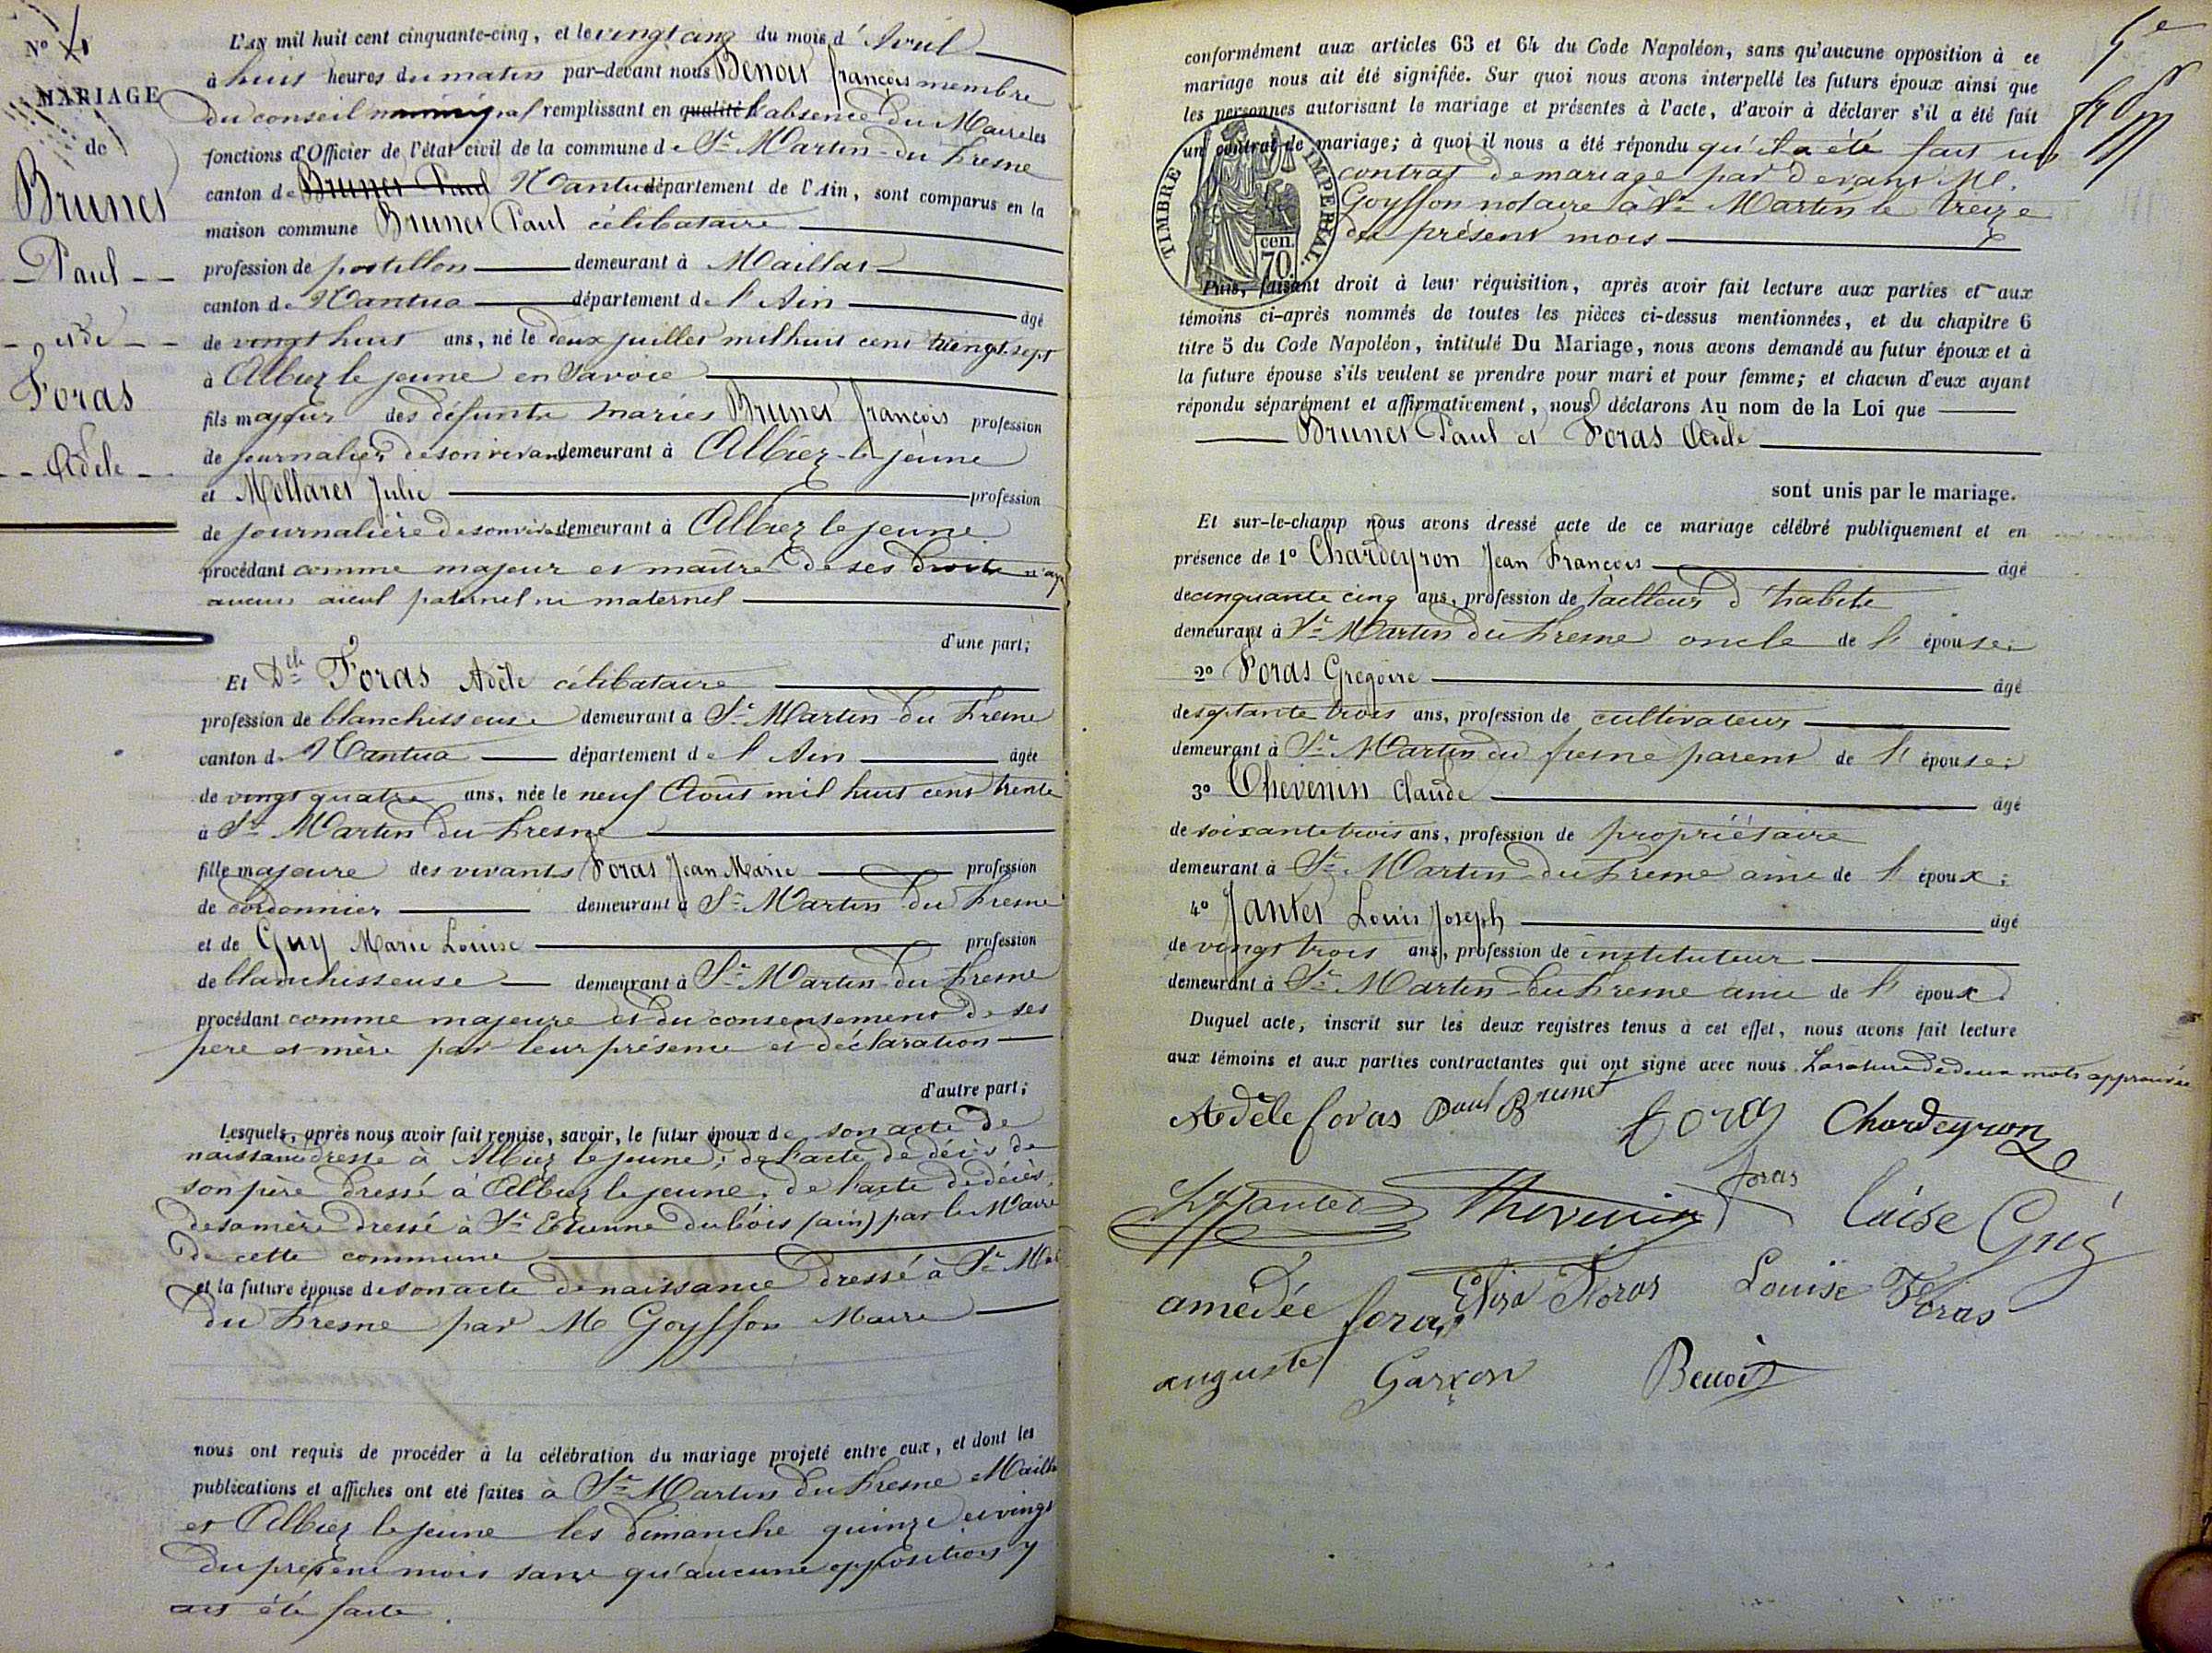 MARIAGE
de
Brunet
Paul
et de
Foras
Adèle
L'an mil huit cent cinquante-cinq, et le vingt cinq du mois d'Avril
à huit heures du matin par-devant nous Benoit françois membre
du conseil municipal remplissant en qualité l'absence du Maire les
fonctions d'Officier de l'état civil de la commune de St Martin-du fresne
canton de Brunet Paul Nantua département de l'Ain, sont comparus en la
maison commune Brunet Paul célibataire
profession de postillon demeurant à Maillat
canton de Nantua département de l'Ain âgé
de vingt huit ans, né le deux juillet mil huit cent vingt-sept
à Albiez le jeune en Savoie
fils majeur des défunts mariés Brunet françois profession
de journalier de son vivant demeurant à Albiez-le-jeune
et Mollaret Julie profession
de journalière de son vivant demeurant à Albiez le jeune
procédant comme majeur et maître de ses droits n'ay
aucun aïeul paternel ni maternel
d'une part;
Et Dlle Foras Adèle célibataire
profession de blanchisseuse demeurant à St Martin-du fresne
canton de Nantua département de l'Ain âgée
de vingt quatre ans, née le neuf Août mil huit cent trente
à St Martin du fresne
fille majeure des vivants Foras Jean Marie profession
de cordonnier demeurant à St Martin du fresne
et de Guy Marie Louise profession
de blanchisseuse demeurant à St Martin-du fresne
procédant comme majeure et du consentement de ses
père et mère par leur présence et déclaration
d'autre part;
Lesquels, après nous avoir fait remise, savoir, le futur époux de son acte de
naissance dressé à Albiez le jeune; de l'acte de décès de
son père dressé à Albiez le jeune, de l'acte de décès
de sa mère dressé à St Etienne du bois (ain) par le Maire
de cette commune
et la future épouse de son acte de naissance dressé à St Mar
du fresne par M Goyffon Maire
nous ont requis de procéder à la célébration du mariage projeté entre eux, et dont les
publications et affiches ont été faites à St Martin du fresne Mailla
et Albiez le jeune les dimanche quinze et vingt
du présent mois sans qu'aucune opposition y
ait été faite.
5e
conformément aux articles 63 et 64 du Code Napoléon, sans qu'aucune opposition à ce
mariage nous ait été signifiée. Sur quoi nous avons interpellé les futurs époux ainsi que
les personnes autorisant le mariage et présentes à l'acte, d'avoir à déclarer s'il a été fait
un contrat de mariage; à quoi il nous a été répondu qu'il a été fait un
contrat de mariage par devant Me.
Goyffon notaire à St Martin le treize
du présent mois
TIMBRE IMPÉRIAL
cen.
70.
Puis, faisant droit à leur réquisition, après avoir fait lecture aux parties et aux
témoins ci-après nommés de toutes les pièces ci-dessus mentionnées, et du chapitre 6
titre 5 du Code Napoléon, intitulé Du Mariage, nous avons demandé au futur époux et à
la future épouse s'ils veulent se prendre pour mari et pour femme; et chacun d'eux ayant
répondu séparément et affirmativement, nous déclarons Au nom de la Loi que
Brunet Paul et Foras Adèle
sont unis par le mariage.
Et sur-le-champ nous avons dressé acte de ce mariage célébré publiquement et en
présence de 1º Chardeyron Jean François âgé
de cinquante cinq ans, profession de tailleur d'habits
demeurant à St Martin du fresne oncle de l'épouse;
2º Foras Gregoire âgé
de septante trois ans, profession de cultivateur
demeurant à St Martin du fresne parent de l'épouse;
3º Thevenin Claude âgé
de soixante trois ans, profession de propriétaire
demeurant à St Martin du fresne ami de l'époux;
4º Jantet Louis Joseph âgé
de vingt trois ans, profession de instituteur
demeurant à St Martin-du fresne ami de l'époux.
Duquel acte, inscrit sur les deux registres tenus à cet effet, nous avons fait lecture
aux témoins et aux parties contractantes qui ont signé avec nous. La rature de deux mots approuvée
Adèle foras Paul Brunet foras Chardeyron
Jantet Thevenin foras Luise Guy
amédée foras Elisa Foras Louise Foras
auguste Garçon Benoit